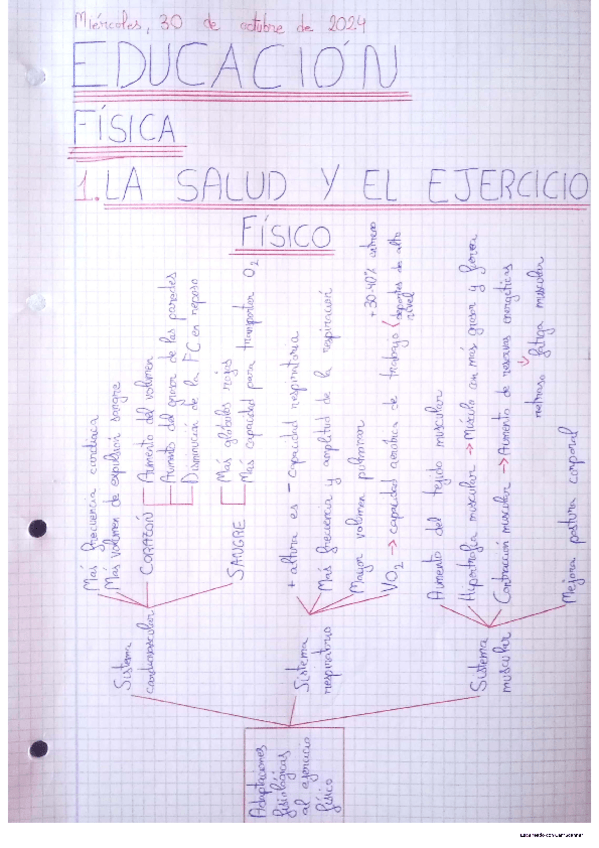 Miércoles, 30 de octubre de 2024
EDUCACIÓN
FÍSICA
1. LA SALUD Y EL EJERCICIO
FÍSICO
Adaptaciones
fisiológicas
al ejercicio
físico
Sistema
cardiovascular
Más frecuencia cardíaca
Más volumen de expulsión sangre
CORAZÓN
Aumento del volumen
Aumento del grosor de las paredes
Disminución de la FC en reposo
SANGRE
Más glóbulos rojos
Más capacidad para transportar O2
Sistema
respiratorio
+ altura es - capacidad respiratoria
Más frecuencia y amplitud de la respiración
Mayor volumen pulmonar
VO2 → capacidad aeróbica de trabajo
+30-40%
deportes de alto
nivel
Sistema
muscular
Aumento del tejido muscular
Hipertrofia muscular → Músculo con más grosor y fuerza
Contracción muscular → Aumento de reservas energéticas
retraso fatiga muscular
Mejora postura corporal